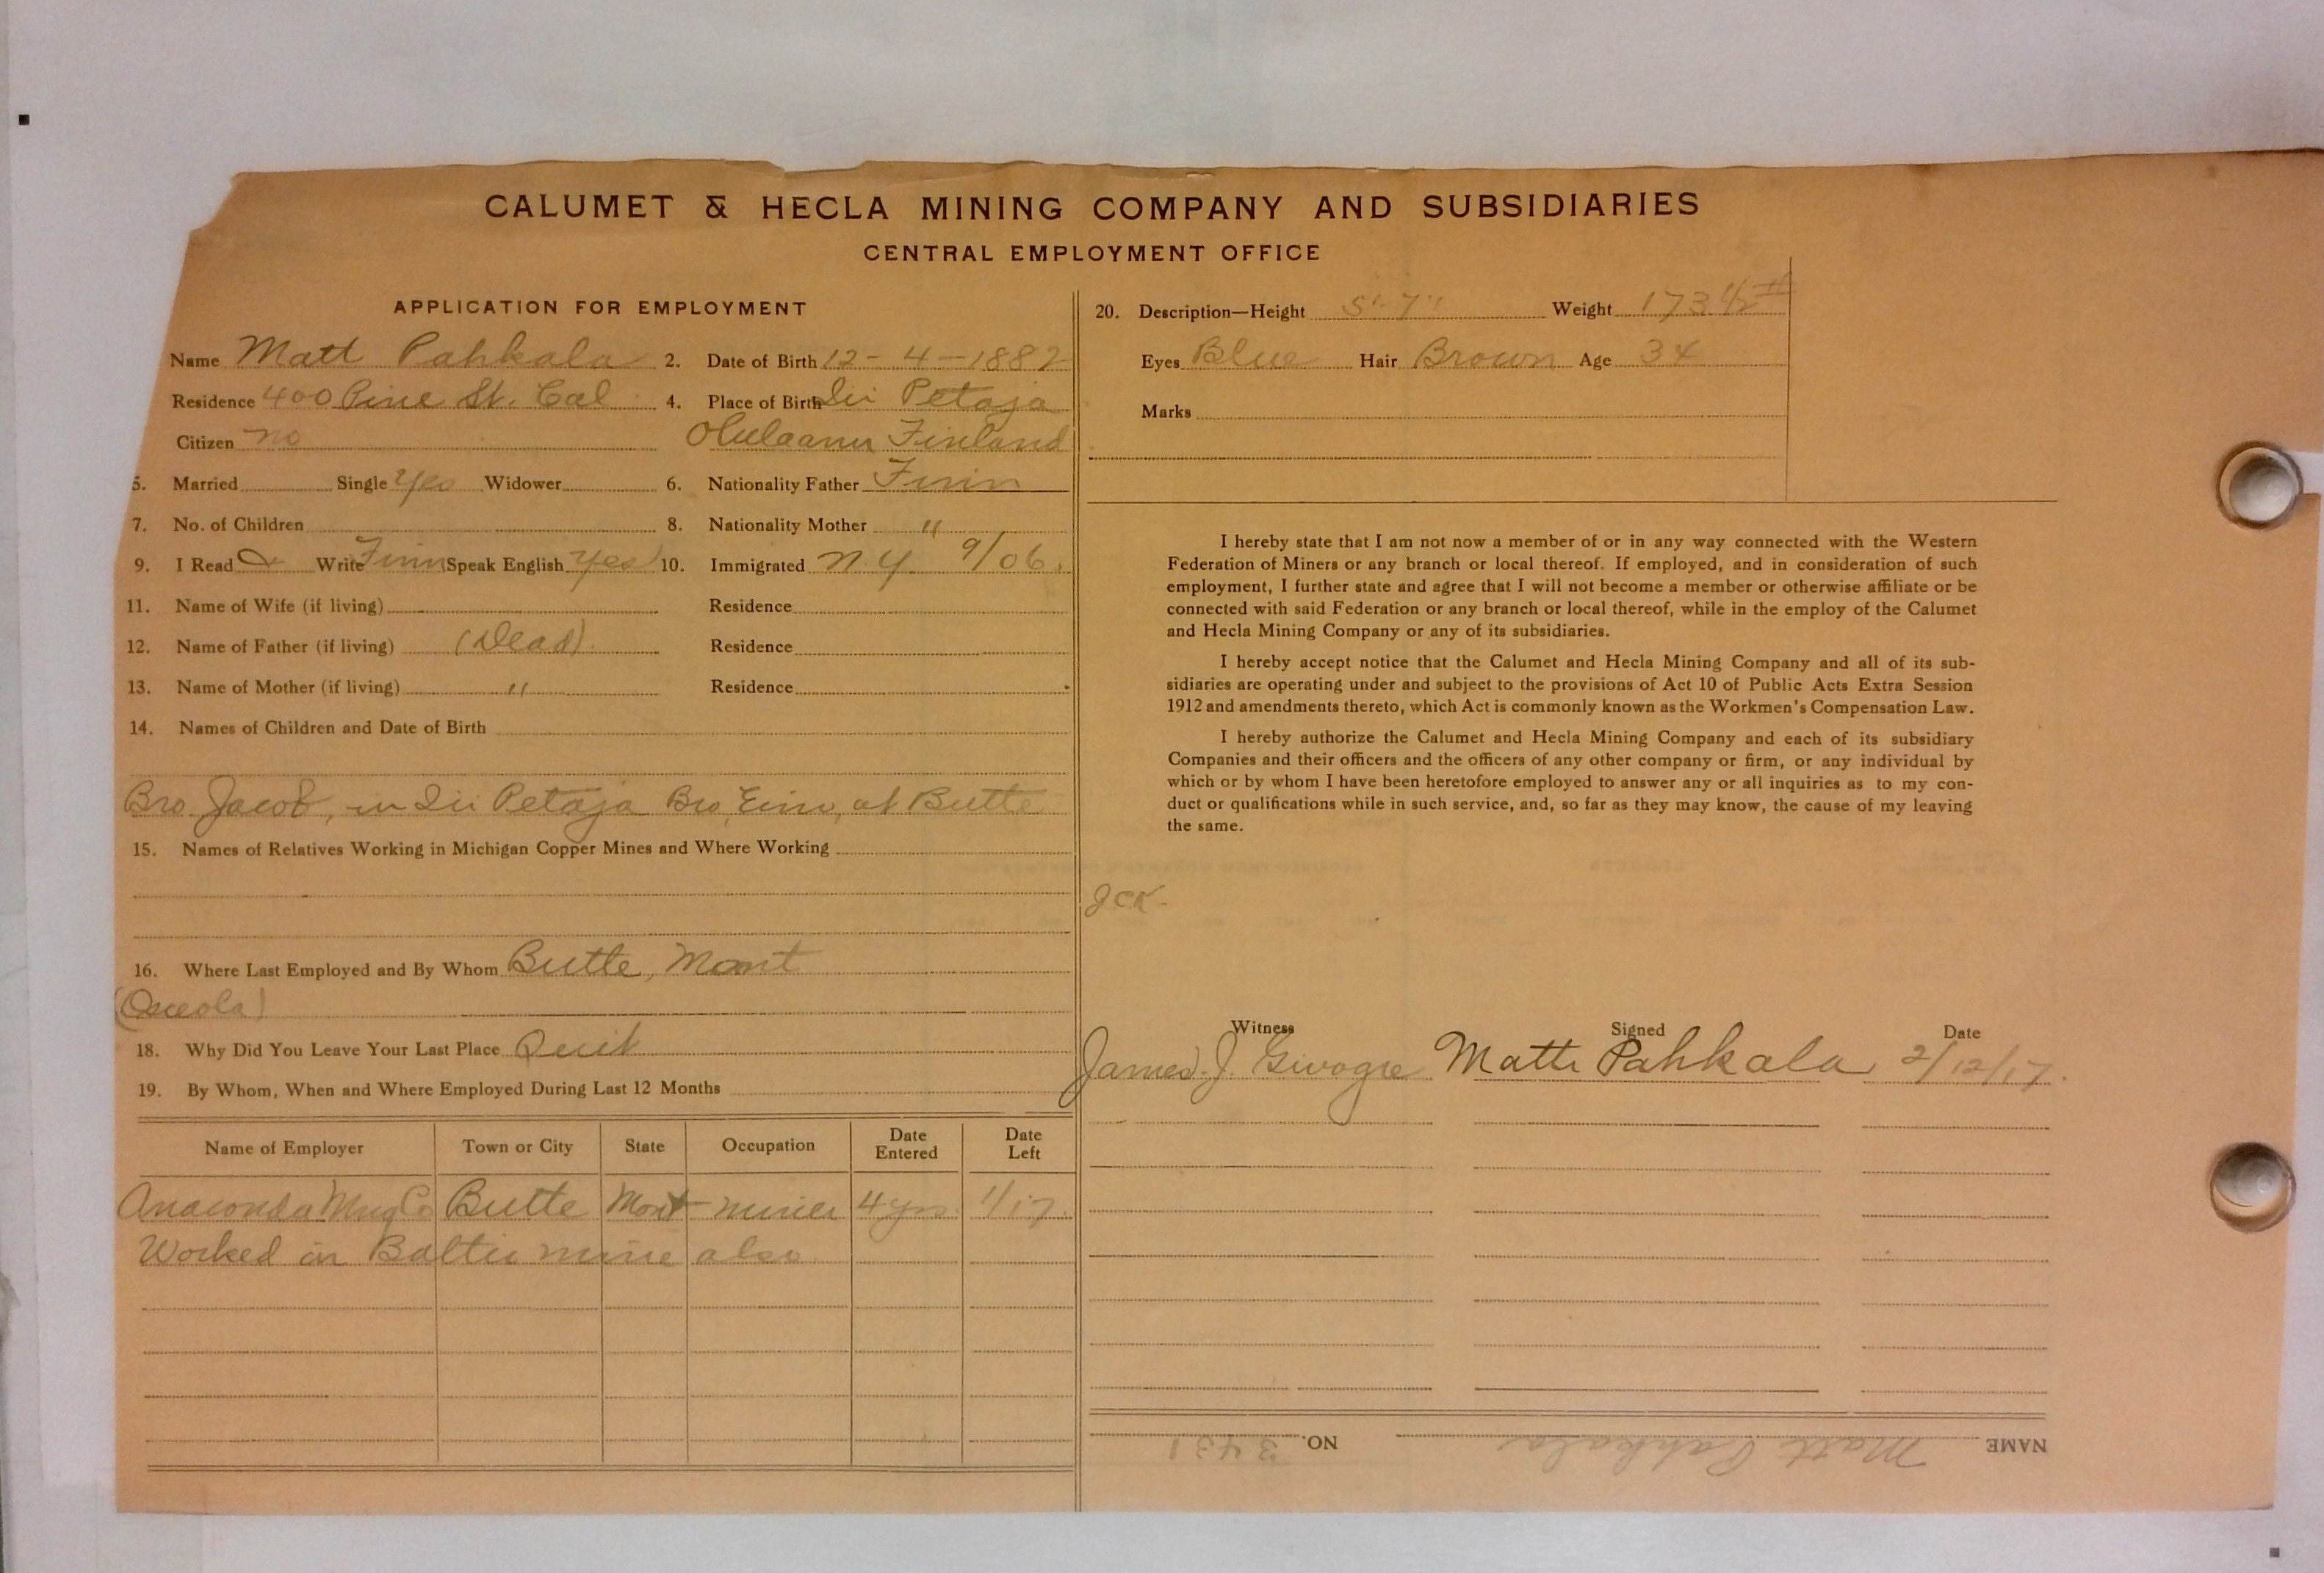 CALUMET & HECLA MINING COMPANY AND SUBSIDIARIES
CENTRAL EMPLOYMENT OFFICE
APPLICATION FOR EMPLOYMENT
Name Matt Pahkala 2. Date of Birth 12-4-1882
Residence 400 Pine St. Cal 4. Place of Birth Iii Petaja
Citizen no Oulaanu Finland
5. Married Single Yes Widower 6. Nationality Father Finn
7. No. of Children 8. Nationality Mother "
9. I Read & Write Finn Speak English Yes 10. Immigrated N.Y. 9/06.
11. Name of Wife (if living) Residence
12. Name of Father (if living) (Dead). Residence
13. Name of Mother (if living) " Residence
14. Names of Children and Date of Birth
Bro Jacob, in Iii Petaja Bro, Eino, at Butte
15. Names of Relatives Working in Michigan Copper Mines and Where Working
16. Where Last Employed and By Whom Butte, Mont
(Osceola)
18. Why Did You Leave Your Last Place Quit
19. By Whom, When and Where Employed During Last 12 Months
Name of Employer Town or City State Occupation Date Entered Date Left
Anaconda Mng Co Butte Mont miner 4 yrs. 1/17.
Worked in Baltic mine also.
20. Description—Height 5'-7" Weight 173 1/2 #
Eyes Blue Hair Brown Age 34
Marks
I hereby state that I am not now a member of or in any way connected with the Western
Federation of Miners or any branch or local thereof. If employed, and in consideration of such
employment, I further state and agree that I will not become a member or otherwise affiliate or be
connected with said Federation or any branch or local thereof, while in the employ of the Calumet
and Hecla Mining Company or any of its subsidiaries.
I hereby accept notice that the Calumet and Hecla Mining Company and all of its sub-
sidiaries are operating under and subject to the provisions of Act 10 of Public Acts Extra Session
1912 and amendments thereto, which Act is commonly known as the Workmen's Compensation Law.
I hereby authorize the Calumet and Hecla Mining Company and each of its subsidiary
Companies and their officers and the officers of any other company or firm, or any individual by
which or by whom I have been heretofore employed to answer any or all inquiries as to my con-
duct or qualifications while in such service, and, so far as they may know, the cause of my leaving
the same.
JCK-
Witness Signed Date
James J. Matti Pahkala 2/12/17.
NAME Matt Pahkala NO. 3431